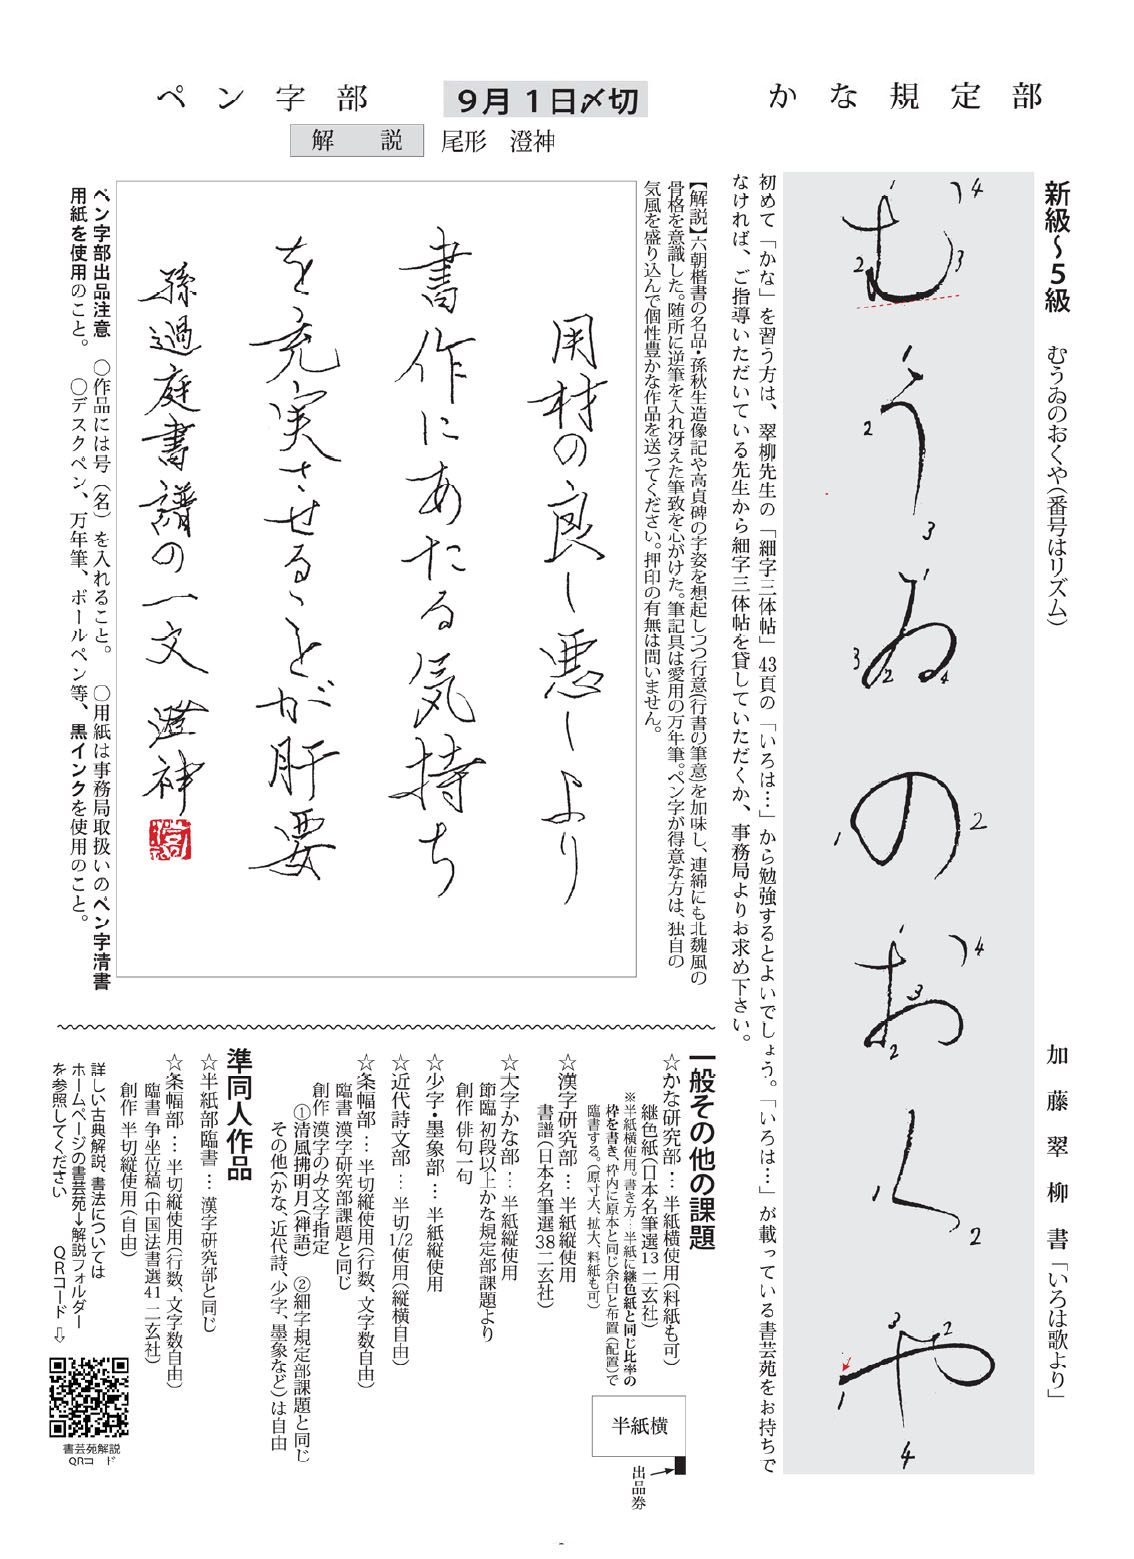 かな規定部
9月1日〆切
ペン字部
解説　尾形　澄神
新級～5級　むうゐのおくや（番号はリズム）
加藤翠柳書「いろは歌より」
むうゐのおくや
1
2
3
4
2
3
1
2
3
4
1
2
1
2
3
4
2
1
2
3
4
初めて「かな」を習う方は、翠柳先生の「細字三体帖」43頁の「いろは…」から勉強するとよいでしょう。「いろは…」が載っている書芸苑をお持ちで
なければ、ご指導いただいている先生から細字三体帖を貸していただくか、事務局よりお求め下さい。
【解説】六朝楷書の名品・孫秋生造像記や高貞碑の字姿を想起しつつ行意（行書の筆意）を加味し、連綿にも北魏風の
骨格を意識した。随所に逆筆を入れ冴えた筆致を心がけた。筆記具は愛用の万年筆。ペン字が得意な方は、独自の
気風を盛り込んで個性豊かな作品を送ってください。押印の有無は問いません。
用材の良し悪しより
書作にあたる気持ち
を充実させることが肝要
孫過庭書譜の一文　澄神
ペン字部出品注意　○作品には号（名）を入れること。　○用紙は事務局取扱いのペン字清書
用紙を使用のこと。　○デスクペン、万年筆、ボールペン等、黒インクを使用のこと。
一般その他の課題
☆かな研究部…半紙横使用（料紙も可）
継色紙（日本名筆選13 二玄社）
※半紙横使用。書き方…半紙に継色紙と同じ比率の
枠を書き、枠内に原本と同じ余白と布置（配置）で
臨書する。（原寸大、拡大、料紙も可）
半紙横
出品券
☆漢字研究部…半紙縦使用
書譜（日本名筆選38 二玄社）
☆大字かな部…半紙縦使用
節臨 初段以上かな規定部課題より
創作 俳句一句
☆少字・墨象部…半紙縦使用
☆近代詩文部…半切1/2使用（縦横自由）
☆条幅部…半切縦使用（行数、文字数自由）
臨書 漢字研究部課題と同じ
創作 漢字のみ文字指定
①清風拂明月（禅語）　②細字規定部課題と同じ
その他（かな、近代詩、少字、墨象など）は自由
準同人作品
☆半紙部臨書…漢字研究部と同じ
☆条幅部…半切縦使用（行数、文字数自由）
臨書 争坐位稿（中国法書選41 二玄社）
創作 半切縦使用（自由）
詳しい古典解説、書法については
ホームページの書芸苑→解説フォルダー
を参照してください　QRコード⇩
書芸苑解説
QRコード